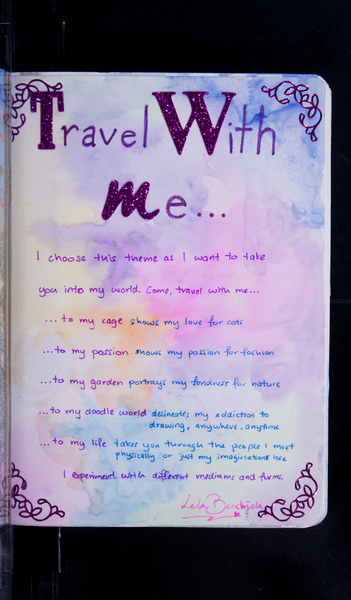 Travel With
Me...
I choose this theme as I want to take
you into my world. Come, travel with me...
...to my cage shows my love for cats
...to my passion shows my passion for fashion
...to my garden portrays my fondness for nature
...to my doodle world delineates my addiction to
drawing, anywhere, anytime
...to my life takes you through the people I meet
physically or just my imaginations
I experiment with different mediums and forms.